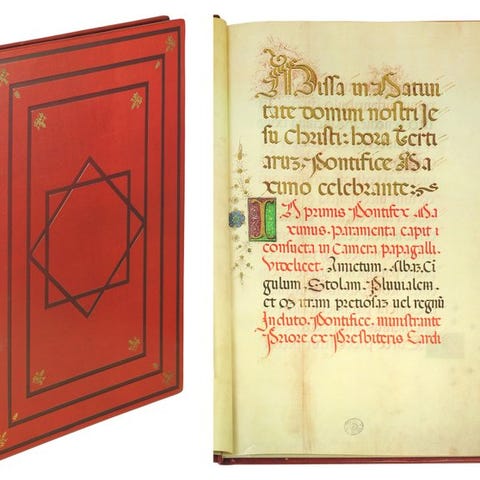 Missa in Natiui
tate domini nostri Je
su Christi: hora Terti
arum. Pontifice Ma
ximo celebrante:
In primis Pontifex Ma
ximus. paramenta capit i
consueta in Camera papagalli.
Videlicet. Amictum. Albaz. Ci
gulum. Stolam. Pluuialem.
et Mitram pretiosaz uel regnū
Induto. Pontifice. ministrante
Priore ex Presbiteris Cardi